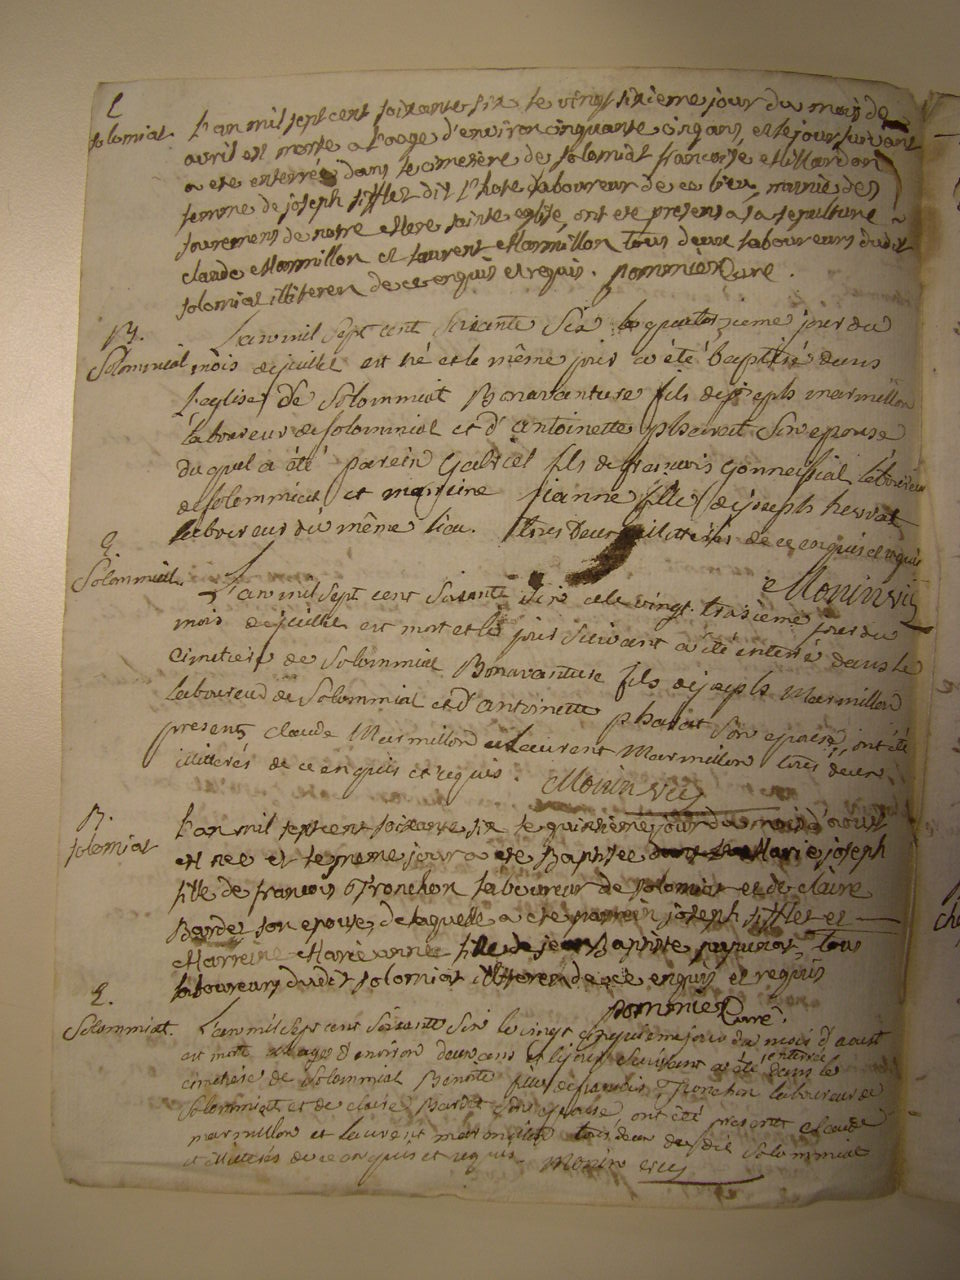 E
solomiat
L'an mil sept cent soixante six le vingt sixieme jour du mois de
avril est morte a L'aage d'environ cinquante cinq ans, et le jour suivant
a ete enterrée dans le cimetière de solomiat francoise
femme de joseph dit L'hote Laboureur de ce lieu, munie des
de notre Mere sainte eglise, ont ete presens a sa sepulture
claude Marmillon et Laurent Marmillon tous deux laboureurs dudit
solomiat illiteren de ce enquis et requis. pommier Curé.
B.
Solommiat
L'an mil sept cent soixante six le quatorzieme jour du
mois de juillet est né et le même jour a été baptisé dans
L'eglise de Solommiat Bonavanture fils de joseph marmillon
laboureur de solommiat et d'antoinette pharat son epouse
du quel a été parein Gabriel fils de francois laboureur
de solommiat et marreine jeanne fille de joseph
laboureur du même lieu. tous deux illiterés de ce enquis et requis
Monin vic
E.
Solommiat.
L'an mil sept cent soixante six et le vingt troisieme jour du
mois de juillet est mort et le jour suivant a été enterré dans le
cimetiere de Solommiat Bonavanture fils de joseph Marmillon
laboureur de Solommiat et d'antoinette pharat son epouse, ont été
presents claude Marmillon et Laurent Marmillon tous deux
illiterés de ce enquis et requis. Monin vic
B.
solomiat
L'an mil sept cent soixante six le quinsieme jour du mois d'aoust
est née et le meme jour a ete Baptisée Marie joseph
fille de francois Tronchon laboureur de solomiat et de claire
Bardet son epouse, de laquelle a ete parrein joseph et
Marreine Marie anne fille de jean Baptiste tous
laboureurs dudit solomiat illiteren de ce enquis et requis
pommier Curé.
E.
Solommiat.
L'an mil sept cent soixante six le vingt cinquieme jour du mois d'aoust
est morte agée d'environ deux ans et le jour suivant a été enterrée dans le
cimetiere de Solommiat Benoite fille de francois Tronchon laboureur de
Solommiat et de claire Bardet son epouse, ont été present claude
marmillon et laurent marmillon tous deux dudit Solommiat
et illiterés de ce enquis et requis. Monin vic